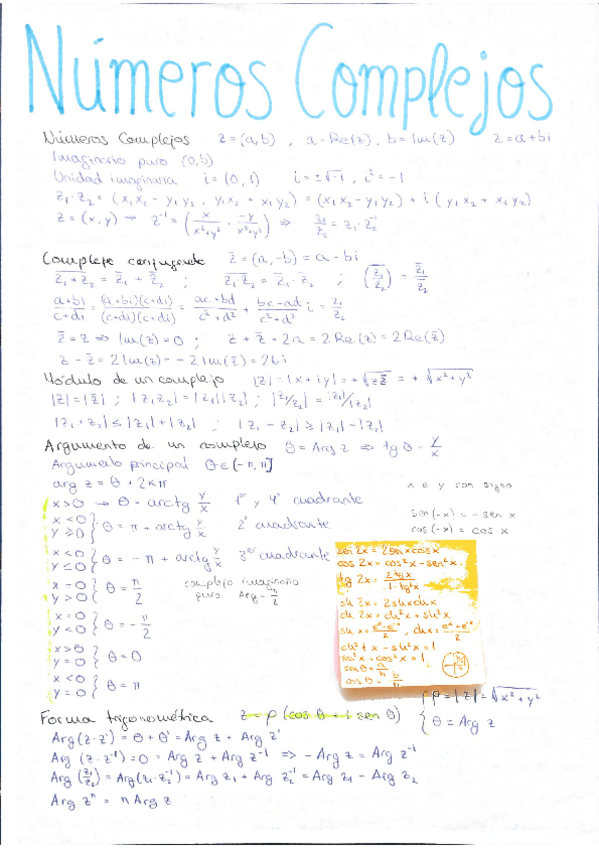 Números Complejos
Números Complejos z=(a,b) , a=Re(z), b=Im(z) z=a+bi
Imaginario puro (0,b)
Unidad imaginaria i=(0,1) i=±√-1 , i²=-1
z₁·z₂=(x₁x₂-y₁y₂, y₁x₂+x₁y₂)=(x₁x₂-y₁y₂)+i(y₁x₂+x₁y₂)
z=(x,y) → z⁻¹=(x/(x²+y²), -y/(x²+y²)) ⇒ z₁/z₂=z₁·z₂⁻¹
Complejo conjugado z̄=(a,-b)=a-bi
z̅₁̅+̅z̅₂̅=z̄₁+z̄₂ ; z̅₁̅·̅z̅₂̅=z̄₁·z̄₂ ; (z̅₁̅/̅z̅₂̅)=z̄₁/z̄₂
(a+bi)/(c+di)=(a+bi)(c+di)/(c+di)(c+di)=(ac+bd)/(c²+d²)+(bc-ad)/(c²+d²) i=z₁/z₂
z̄=z ⇒ Im(z)=0 ; z+z̄=2a=2Re(z)=2Re(z̄)
z-z̄=2Im(z)=-2Im(z̄)=2bi
Módulo de un complejo |z|=|x+iy|=+√zz̄=+√x²+y²
|z|=|z̄| ; |z₁z₂|=|z₁||z₂| ; |z₁/z₂|=|z₁|/|z₂|
|z₁+z₂|≤|z₁|+|z₂| ; |z₁-z₂|≥|z₁|-|z₂|
Argumento de un complejo θ=Arg z ⇒ tg θ=y/x
Argumento principal θ∈(-π,π]
arg z=θ+2kπ
x e y con signo
x>0 → θ=arctg y/x 1º y 4º cuadrante
sen(-x)=-sen x
cos(-x)=cos x
x<0 y≥0 } θ=π+arctg y/x 2º cuadrante
x<0 y≤0 } θ=-π+arctg y/x 3er cuadrante
x=0 y>0 } θ=π/2 complejo imaginario
puro Arg=π/2
x=0 y<0 } θ=-π/2
x>0 y=0 } θ=0
x<0 y=0 } θ=π
sen 2x=2senxcosx
cos 2x=cos²x-sen²x
tg 2x=2tgx/1-tg²x
sh 2x=2shxchx
ch 2x=ch²x+sh²x
shx=(eˣ-e⁻ˣ)/2, chx=(eˣ+e⁻ˣ)/2
sen²x+cos²x=1
Forma trigonométrica z=ρ(cos θ+i sen θ) { ρ=|z|=√x²+y²
θ=Arg z
Arg(z·z')=θ+θ'=Arg z+Arg z'
Arg(z·z⁻¹)=0=Arg z+Arg z⁻¹ ⇒ -Arg z=Arg z⁻¹
Arg(z₁/z₂)=Arg(z₁·z₂⁻¹)=Arg z₁+Arg z₂⁻¹=Arg z₁-Arg z₂
Arg zⁿ=n Arg z